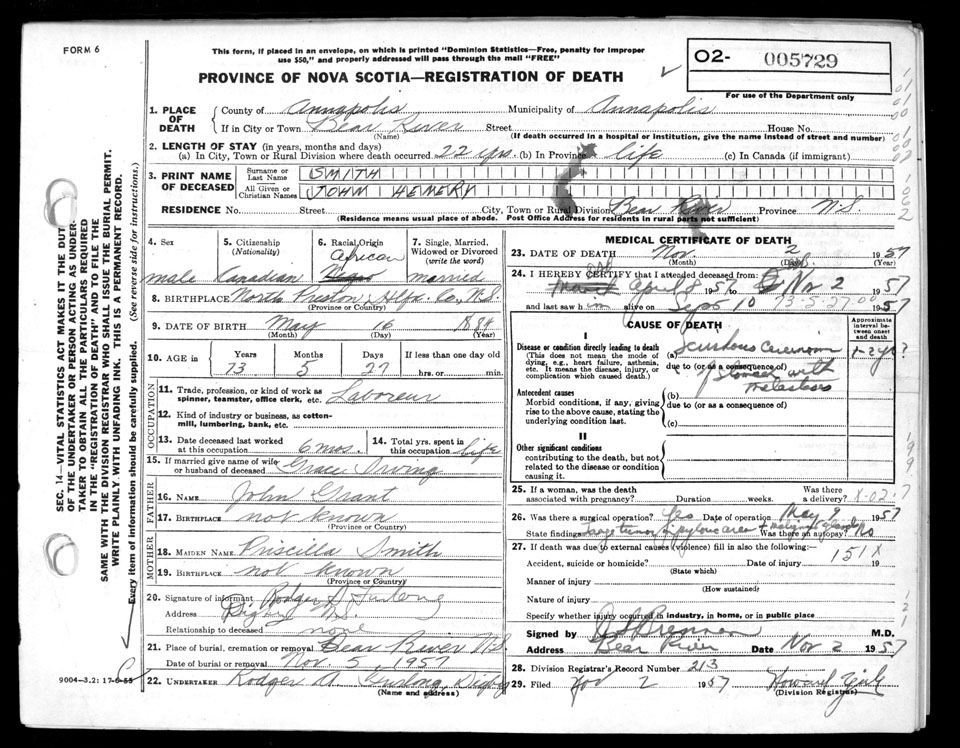 FORM 6
This form, if placed in an envelope, on which is printed "Dominion Statistics—Free, penalty for improper
use $50," and properly addressed will pass through the mail "FREE"
PROVINCE OF NOVA SCOTIA—REGISTRATION OF DEATH
O2- 005729
For use of the Department only
1. PLACE OF DEATH
County of Annapolis Municipality of Annapolis
If in City or Town Bear River Street House No.
(Name) (If death occurred in a hospital or institution, give the name instead of street and number)
2. LENGTH OF STAY (in years, months and days)
(a) In City, Town or Rural Division where death occurred 22 yrs. (b) In Province life (c) In Canada (if immigrant)
3. PRINT NAME OF DECEASED
Surname or Last Name SMITH
All Given or Christian Names JOHN HENERY
RESIDENCE No. Street City, Town or Rural Division Bear River Province N.S.
(Residence means usual place of abode. Post Office Address for residents in rural parts not sufficient)
4. Sex
male
5. Citizenship
(Nationality)
Canadian
6. Racial Origin
African
Negro
7. Single, Married,
Widowed or Divorced
(write the word)
married
8. BIRTHPLACE North Preston, Hlfx. Co, N.S.
(Province or Country)
9. DATE OF BIRTH May 16 1884
(Month) (Day) (Year)
10. AGE in
Years Months Days If less than one day old
73 5 27 hrs. or min.
OCCUPATION
11. Trade, profession, or kind of work as
spinner, teamster, office clerk, etc. Laboreur
12. Kind of industry or business, as cotton-
mill, lumbering, bank, etc.
13. Date deceased last worked
at this occupation 6 mos.
14. Total yrs. spent in
this occupation life
15. If married give name of wife
or husband of deceased Grace Irving
FATHER
16. NAME John Grant
17. BIRTHPLACE not known
(Province or Country)
MOTHER
18. MAIDEN NAME Priscilla Smith
19. BIRTHPLACE not known
(Province or Country)
20. Signature of informant Rodger A Furlong
Address Digby N.S.
Relationship to deceased none
21. Place of burial, cremation or removal Bear River N.S.
Date of burial or removal Nov. 5 1957
22. UNDERTAKER Rodger A. Furlong, Digby
(Name and address)
9004-3.2: 17-6-55
SEC. 14—VITAL STATISTICS ACT MAKES IT THE DUTY
OF THE UNDERTAKER OR PERSON ACTING AS UNDER-
TAKER TO OBTAIN ALL THE PARTICULARS REQUIRED
IN THE "REGISTRATION OF DEATH" AND TO FILE THE
SAME WITH THE DIVISION REGISTRAR WHO SHALL ISSUE THE BURIAL PERMIT.
WRITE PLAINLY WITH UNFADING INK. THIS IS A PERMANENT RECORD.
Every item of information should be carefully supplied. (See reverse side for instructions.)
MEDICAL CERTIFICATE OF DEATH
23. DATE OF DEATH Nov. 2 1957
(Month) (Day) (Year)
24. I HEREBY CERTIFY that I attended deceased from:
April 8 1957 to Nov 2 1957
and last saw him alive on Sept 10 1957
CAUSE OF DEATH
Approximate interval between onset and death
I
Disease or condition directly leading to death
(This does not mean the mode of
dying, e.g., heart failure, asthenia,
etc. It means the disease, injury, or
complication which caused death.)
(a) Scirrhous Carcinoma
due to (or as a consequence of)
of Stomach with
metastases
1-2 yrs?
Antecedent causes
Morbid conditions, if any, giving
rise to the above cause, stating the
underlying condition last.
(b)
due to (or as a consequence of)
(c)
II
Other significant conditions
contributing to the death, but not
related to the disease or condition
causing it.
25. If a woman, was the death
associated with pregnancy? Duration weeks. Was there a delivery?
26. Was there a surgical operation? Yes Date of operation May 9 1957
State findings Large tumor of pyloric area + malignant glands Was there an autopsy? No
27. If death was due to external causes (violence) fill in also the following:—
Accident, suicide or homicide? Date of injury 19
(State which) 151X
Manner of injury
(How sustained)
Nature of injury
Specify whether injury occurred in industry, in home, or in public place
Signed by Brennan M.D.
Address Bear River Date Nov 2 1957
28. Division Registrar's Record Number 213
29. Filed Nov 2 1957 Howard
(Division Registrar)